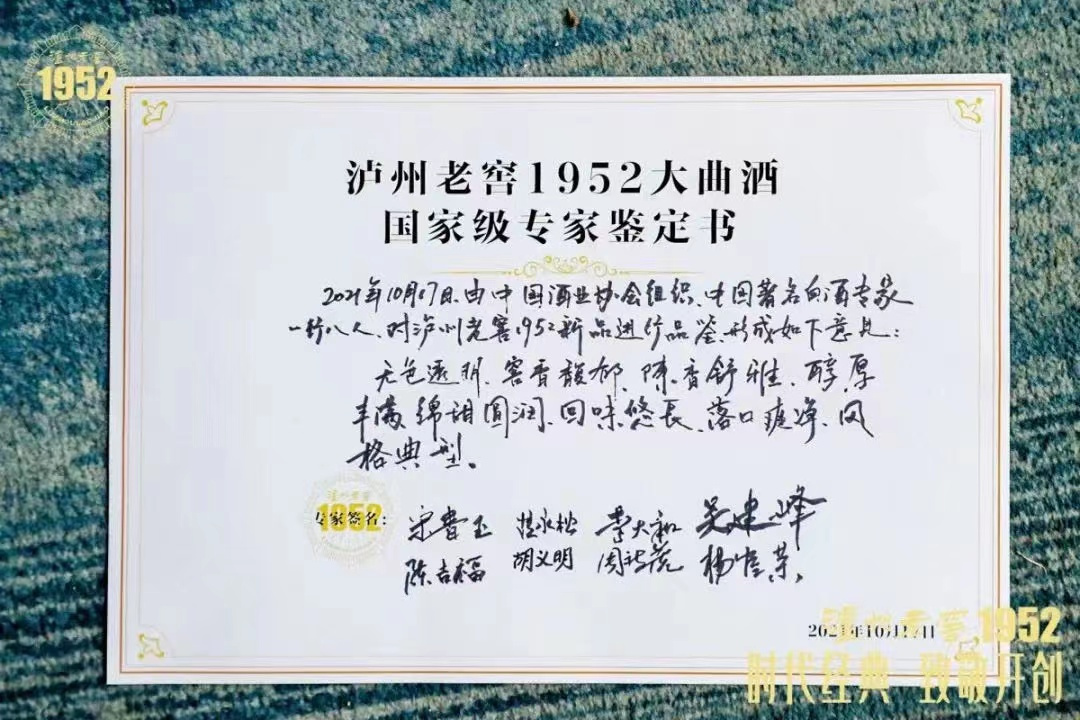 1952
泸州老窖1952大曲酒
国家级专家鉴定书
2021年10月17日,由中国酒业协会组织、中国著名白酒专家
一行八人,对泸州老窖1952新品进行品鉴,形成如下意见:
无色透明、窖香馥郁、陈香舒雅、醇厚
丰满、绵甜圆润、回味悠长、落口爽净、风
格典型。
泸州老窖
1952
专家签名:
宋书玉 李大和 吴建峰
陈吉福 胡义明
2021年10月17日
泸州老窖1952
时代经典 致敬开创